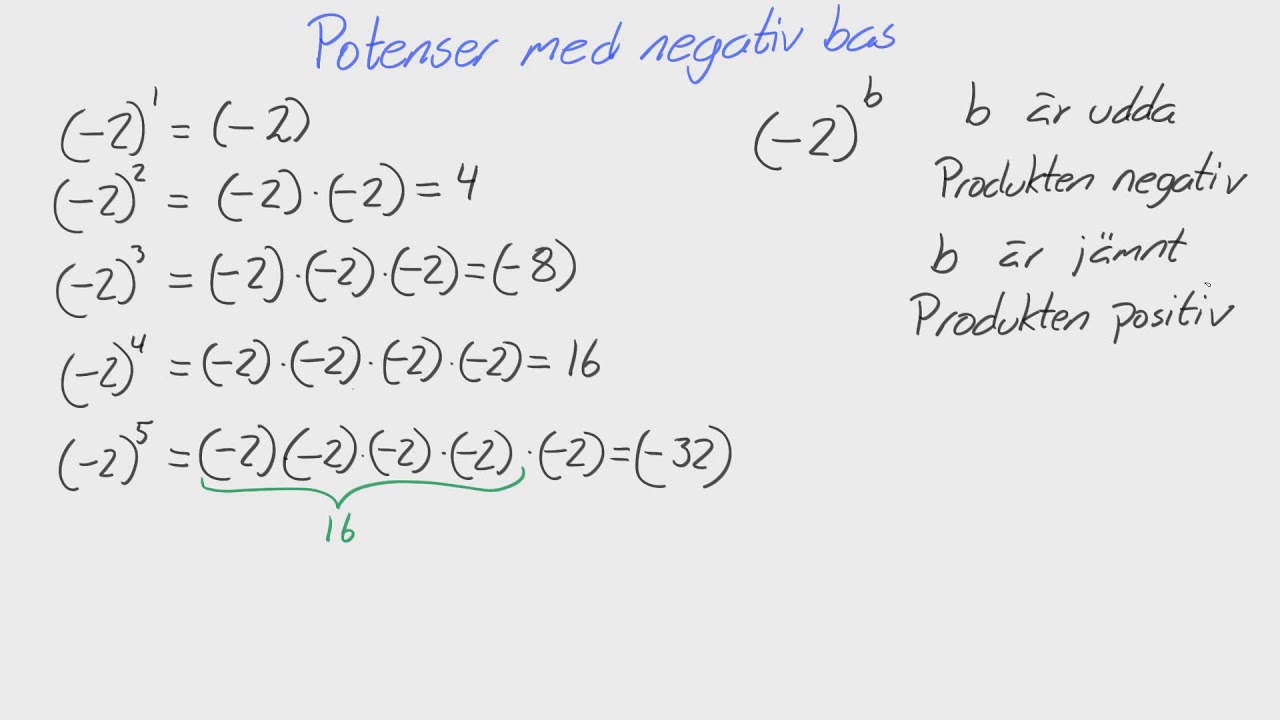 Potenser med negativ bas
(-2)¹ = (-2)
(-2)² = (-2)·(-2) = 4
(-2)³ = (-2)·(-2)·(-2) = (-8)
(-2)⁴ = (-2)·(-2)·(-2)·(-2) = 16
(-2)⁵ = (-2)(-2)·(-2)·(-2)·(-2) = (-32)
16
(-2)ᵇ b är udda
Produkten negativ
b är jämnt
Produkten positiv